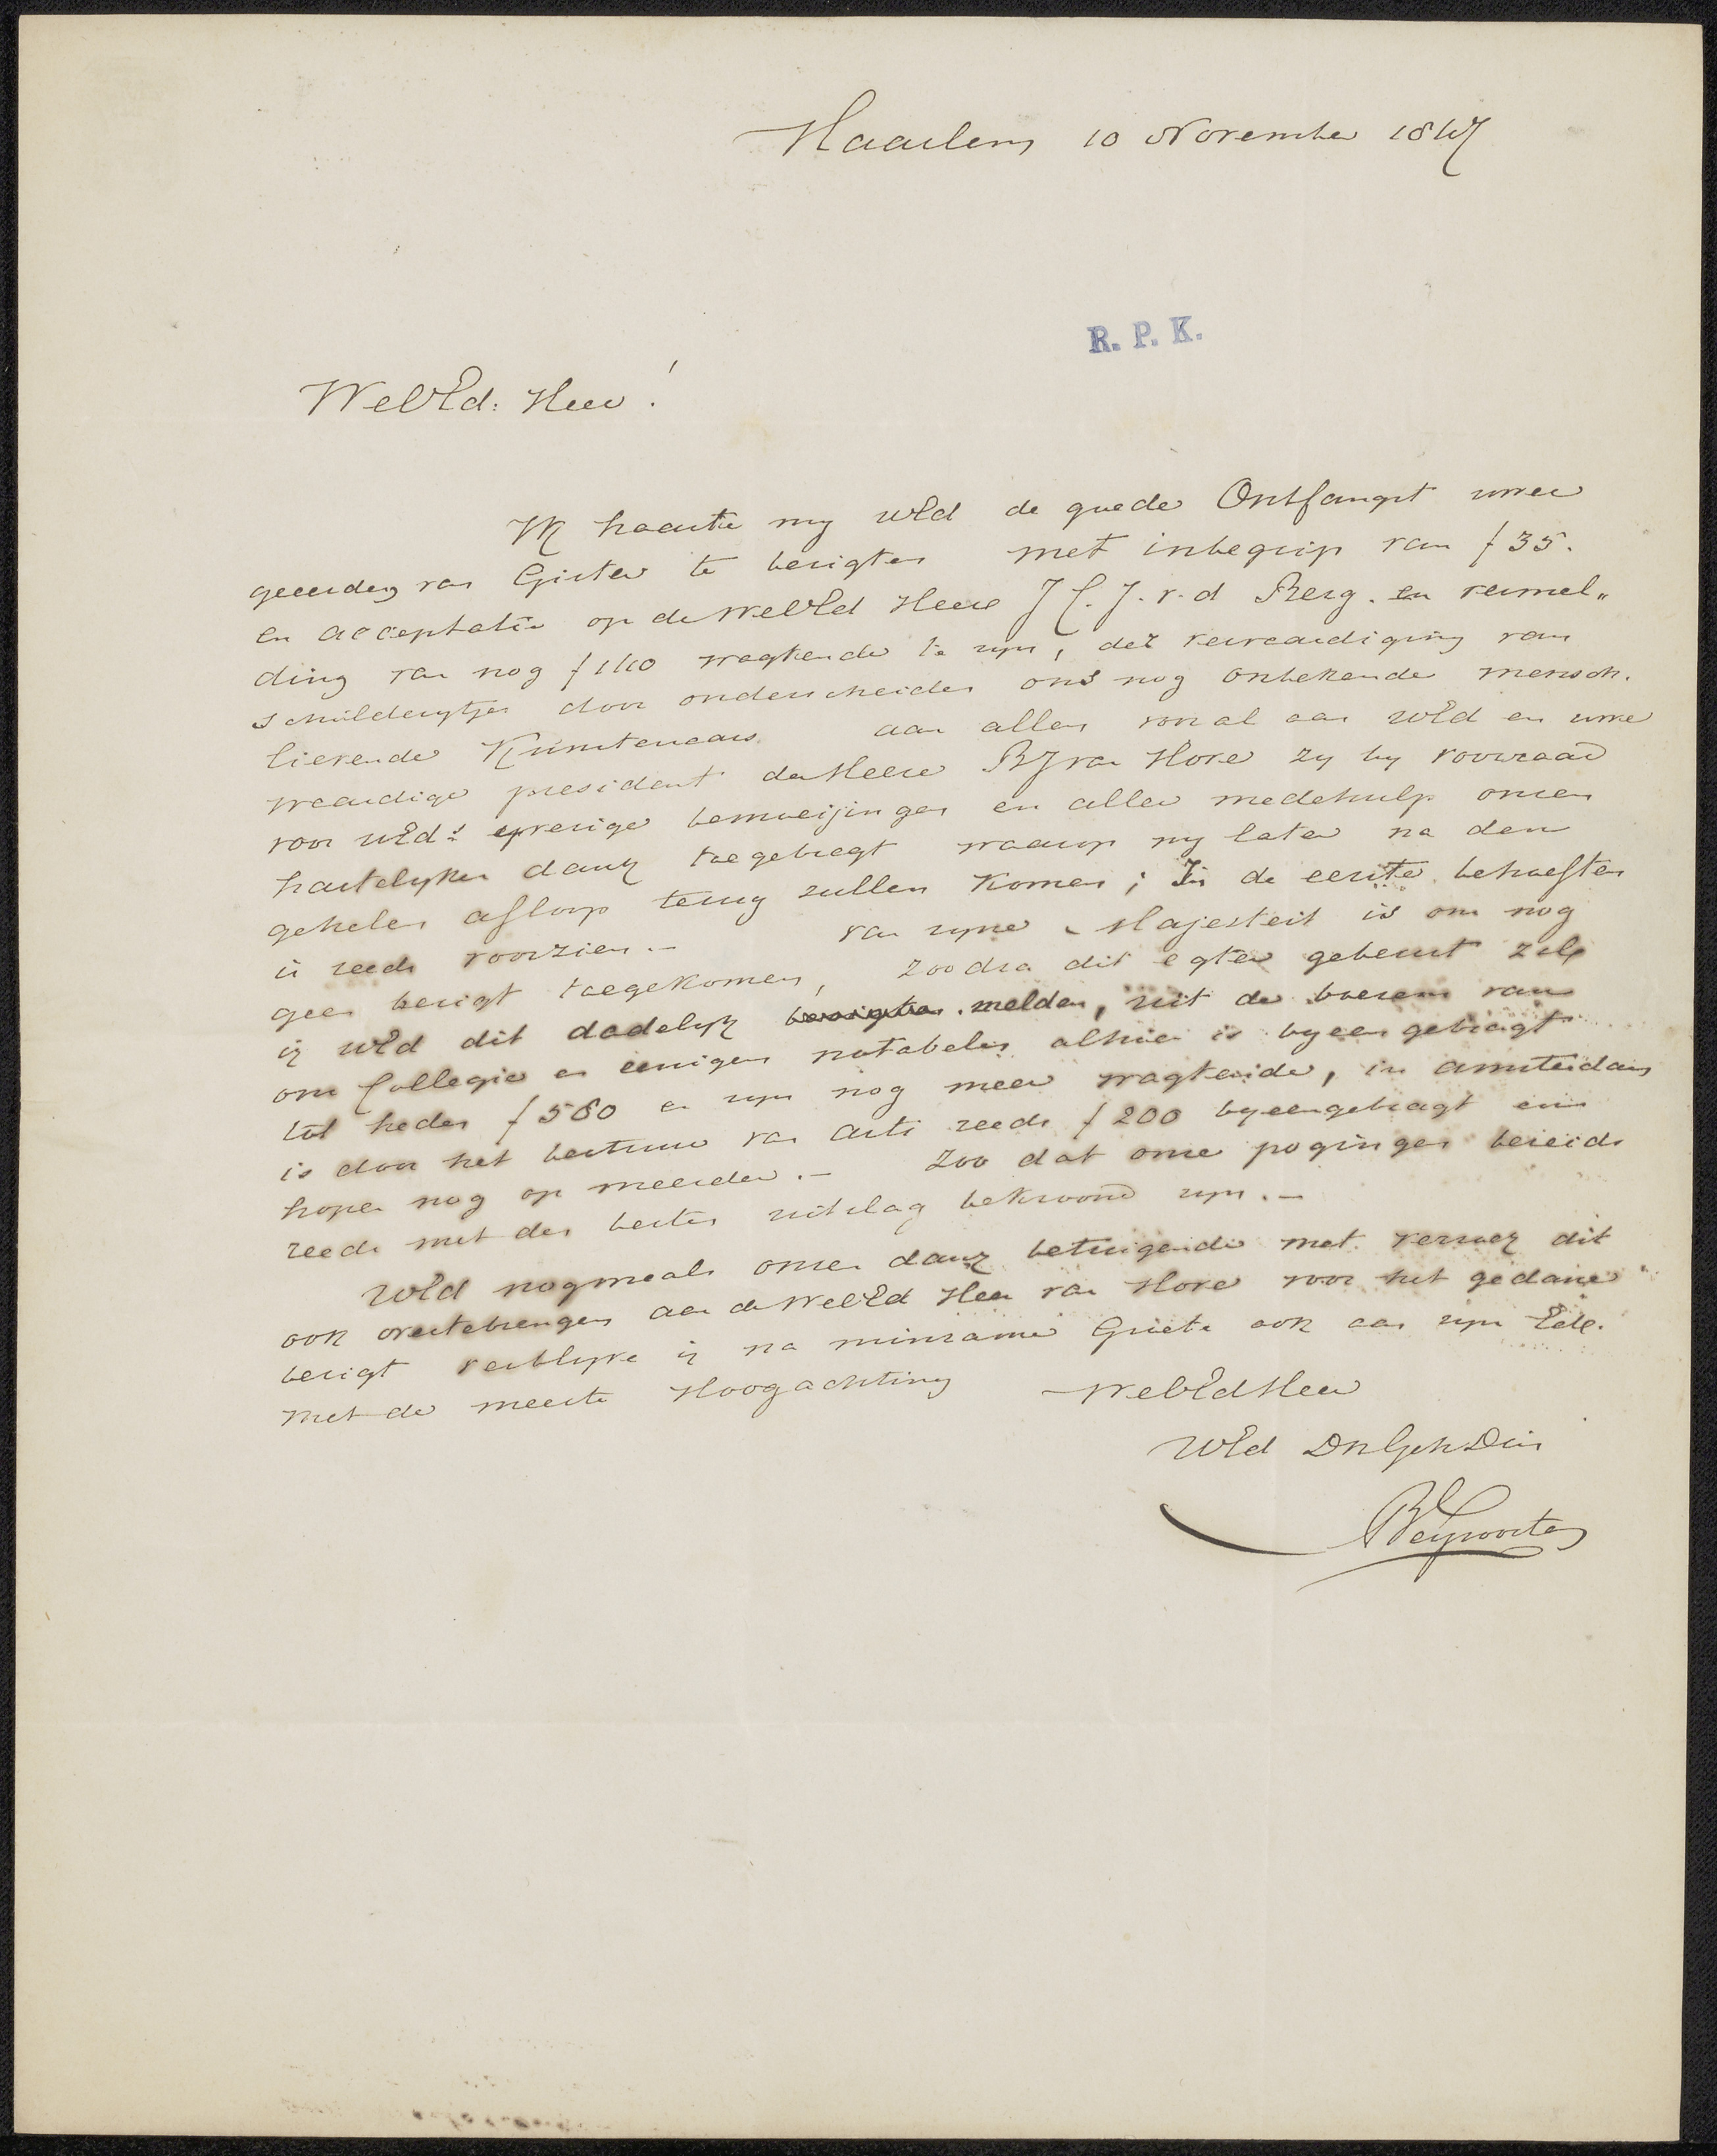 Haarlem 10 November 1847
R. P. K.
WelEd: Heer!
Ik haaste my UEd de goede Ontfangst uwer
geeerden van Gister te berigten met inbegrip van f 35.
en acceptatie op de WelEd Heere J C. J. v. d Berg. en vermel„
ding van nog f 140 wagtende te zyn, der vervaardiging van
schilderytjes door onderscheiden ons nog onbekende mensch.
lievende Kunstenaars. aan allen vooral aan UEd en uwe
waardige president de Heere BJ van Hove zy by voorraad
voor UEds: yverige bemoeijingen en aller medehulp onzen
hartelyken dank toegebragt waarop wy later na den
gehelen afloop terug zullen komen; In de eerste behoeften
is reeds voorzien.— van zyne Majesteit is ons nog
geen berigt toegekomen, zoodra dit egter gebeurt zal
ik UEd dit dadelyk berigten melden, uit de boezem van
ons Collegie en eenigen notabelen alhier is byeen gebragt
tot heden f 580 en zyn nog meer wagtende, in Amsterdam
is door het bestuur van Arti reeds f 200 byeengebragt en
hopen nog op meerder.— Zoo dat onze pogingen bereids
reeds met den besten uitslag bekroond zyn.—
UEd nogmaals onzen dank betuigende met verzoek dit
ook overtebrengen aan de WelEd Heer van Hove voor het gedane
berigt verblyve ik na minzame Groete ook aan zyn Ed.
met de meeste Hoogachting WelEdHeer
UEd